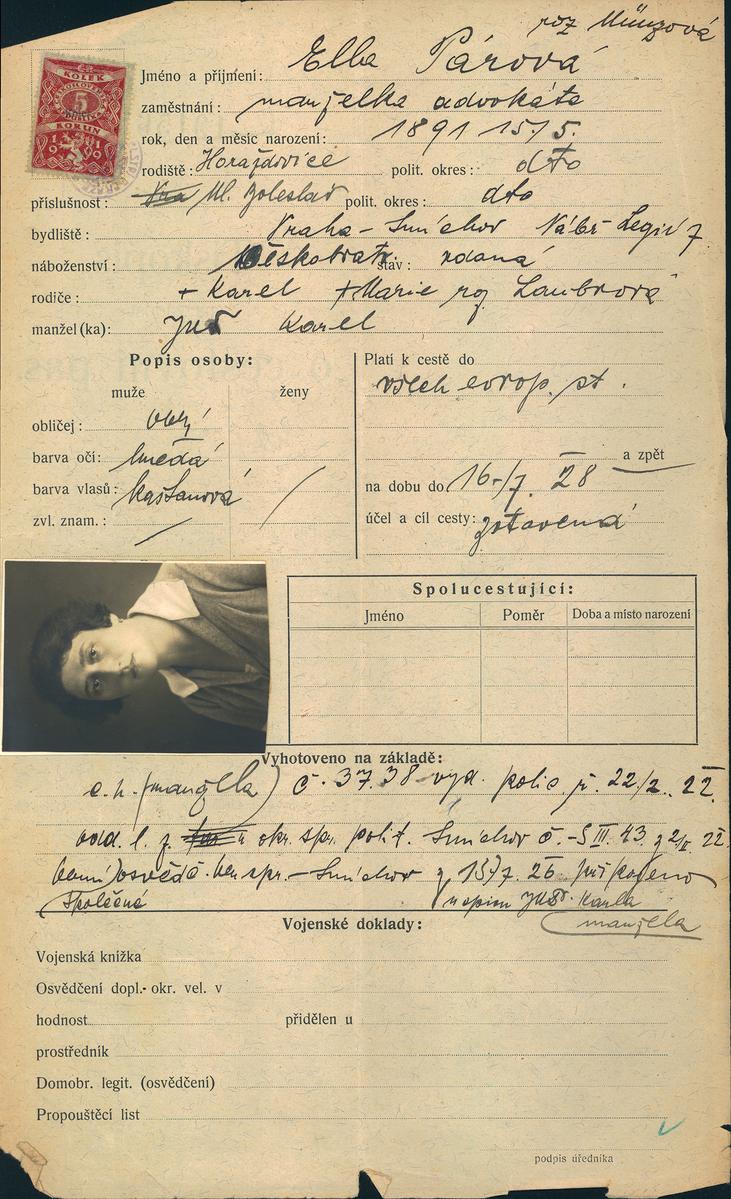 roz Münzová
Jméno a příjmení: Ella Párová
KOLEK
5
KORUN
1919
zaměstnání: manželka advokáta
rok, den a měsíc narození: 1891 15/5.
rodiště: Horažďovice polit. okres: dto
příslušnost: Ml. Boleslav polit. okres: dto
bydliště: Praha-Smíchov Nábř. Legií 7
náboženství: Českobratr. stav: vdaná
rodiče: + Karel + Marie roz. Laubrová
manžel (ka): JUDr Karel
Popis osoby:
muže ženy
obličej: oval.
barva očí: hnědá
barva vlasů: kaštanová
zvl. znam.:
Platí k cestě do
všech evrop. st.
a zpět
na dobu do 16-/7. 28
účel a cíl cesty:
Spolucestující:
Jméno Poměr Doba a místo narození
Vyhotoveno na základě:
(manžella) č. 3738 vyd. polic. 22/2. 22.
okr. spr. polit. Smíchov č. 43. 22.
osvědč. ber. spr. - Smíchov z 15/7. 26. připojeno
Společné JUDr. Karla
manžella
Vojenské doklady:
Vojenská knížka
Osvědčení dopl.- okr. vel. v
hodnost přidělen u
prostředník
Domobr. legit. (osvědčení)
Propouštěcí list
podpis úředníka